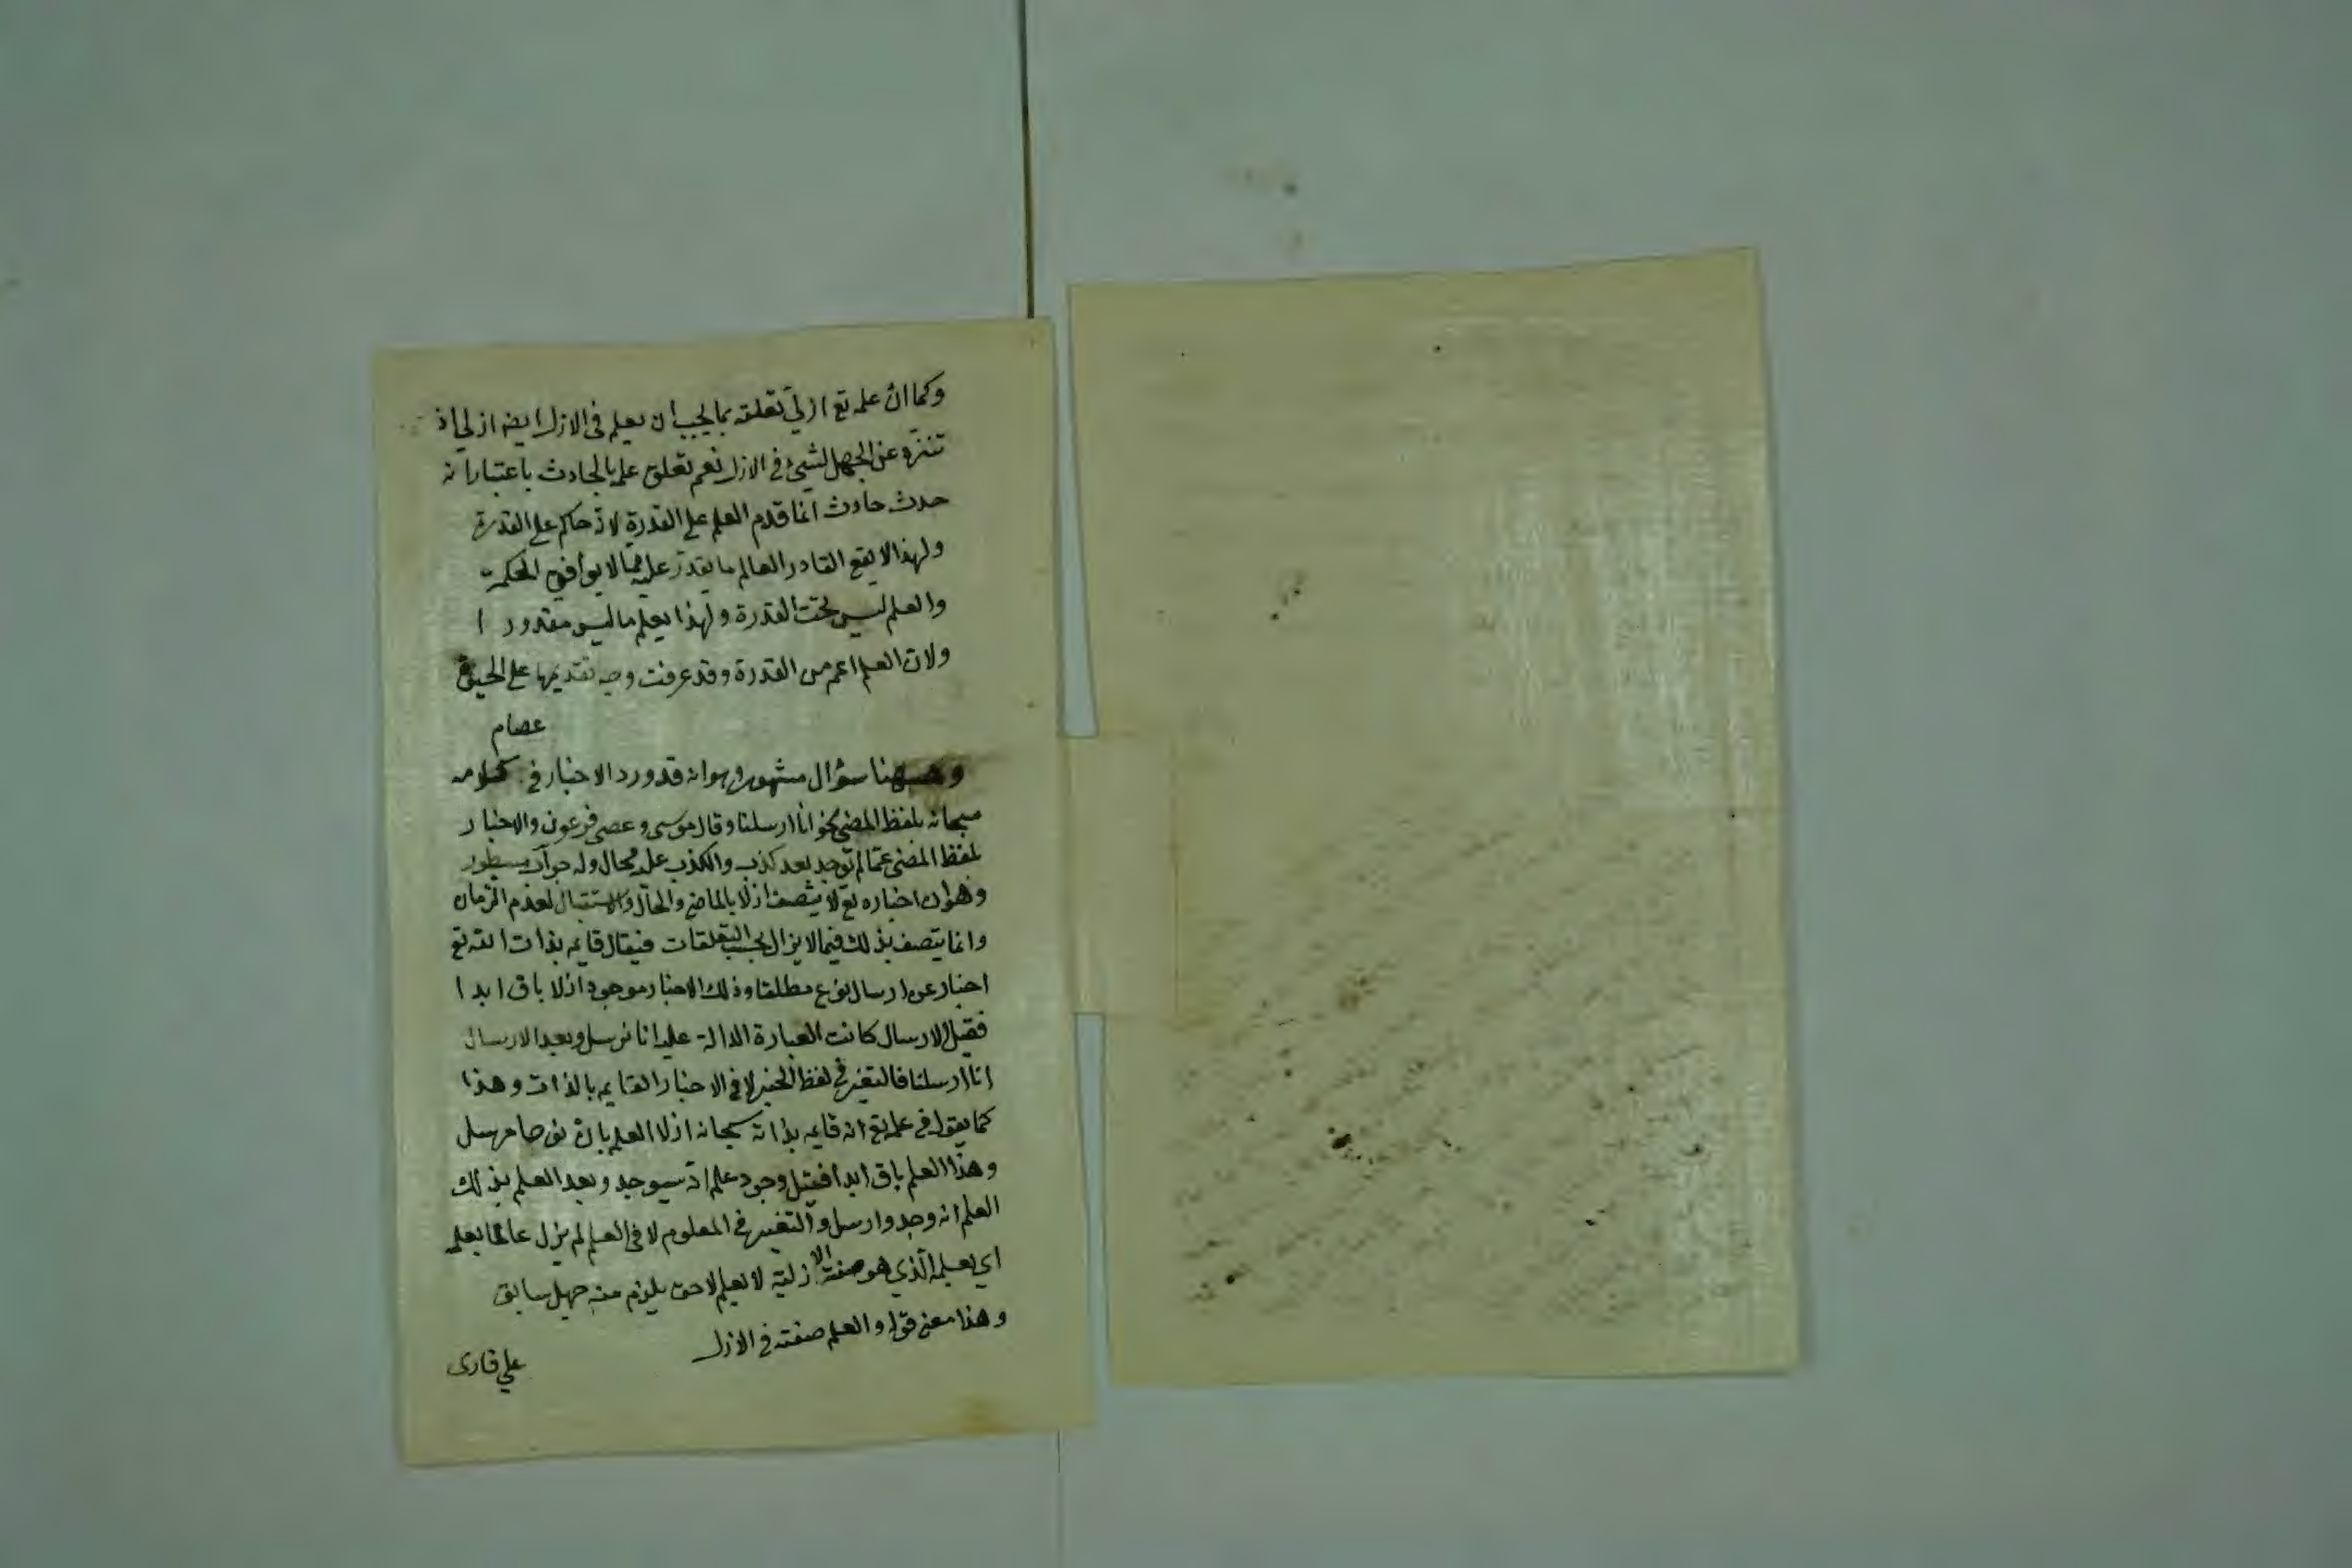 وكما ان علمه تع ازلي تعلقه بما يجب ان يعلم فى الازل ايضه ازلي اذ
تنزه عن الجهل لشيئ فى الازل نعم تعلق علمه بالحادث باعتبار انه
حدث حادث انما قدم العلم على القدرة لانه حاكم على القدرة
ولهذا لا يقع القادر العالم ما يقدر عليه مما لا يوافق الحكمة
والعلم ليس تحت القدرة ولهذا يعلم ما ليس مقدور ا
ولان العلم اعم من القدرة وقد عرفت وجه تقديمها على الحيوة
عصام
وههنا سؤال مشهور وهو انه قد ورد الاخبار في كلامه
سبحانه بلفظ المضى نحو انا ارسلنا وقال موسى و عصى فرعون والاخبار
بلفظ المضى عما لم توجد بعد كذب والكذب عليه محال وله جواب مسطور
وهو ان اخباره تع لا يتصف ازلا بالماضي والحال والاستقبال لعدم الزمان
وانما يتصف بذلك فيما لا يزال بحسب التعلقات فيقال قايم بذات الله تع
اخبار عن ارسال نوع مطلقا وذلك الاخبار موجود ازلا باق ابدا
فقبل الارسال كانت العبارة الدالة عليه انا نرسل وبعد الارسال
انا ارسلنا فالتغير في لفظ الخبر لا في الاخبار القايم بالذات وهذا
كما يقول في علمه تع انه قايم بذاته سبحانه ازلا العلم بان نوحا مرسل
وهذا العلم باق ابدا فقبل وجوده علم انه سيوجد وبعد العلم بذلك
العلم انه وجد وارسل والتغير في المعلوم لا في العلم لم يزل عالما بعلمه
اي بعلمه الذي هو صفته الازلية لا بعلم لاحق يلزم منه جهل سابق
وهذا معنى قوله والعلم صفته في الازل
علي قارى